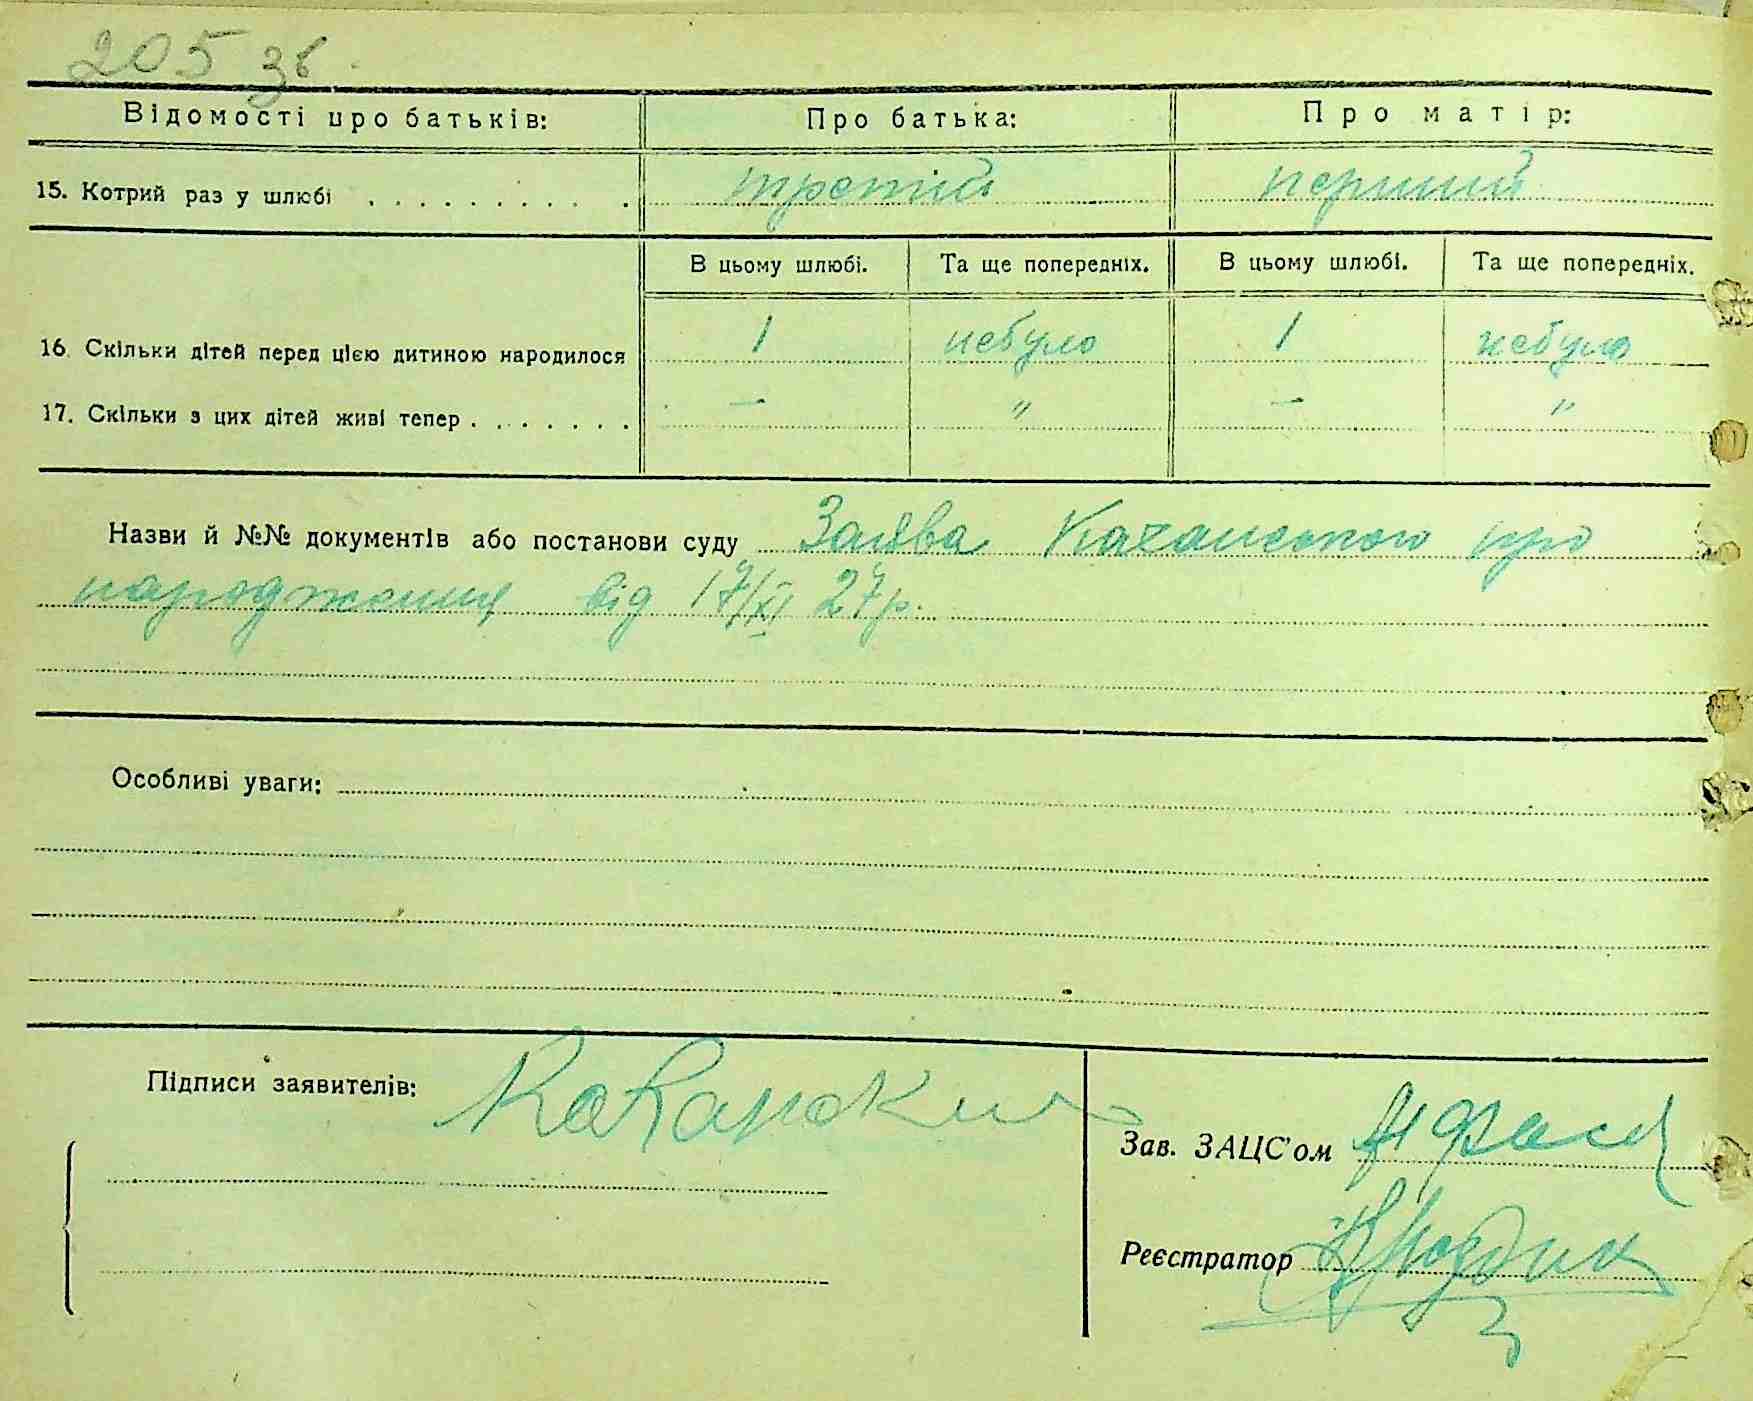 205 зв.
Відомості про батьків: Про батька: Про матір:
15. Котрий раз у шлюбі . . . . . . . . . . третій перший
В цьому шлюбі. Та ще попередніх. В цьому шлюбі. Та ще попередніх.
16. Скільки дітей перед цією дитиною народилося 1 небуло 1 небуло
17. Скільки з цих дітей живі тепер . . . . . . . — " — "
Назви й №№ документів або постанови суду Заява Качанського про
народження від 17/XI 27р.
Особливі уваги:
Підписи заявителів: Качанский
Зав. ЗАЦС'ом
Реєстратор